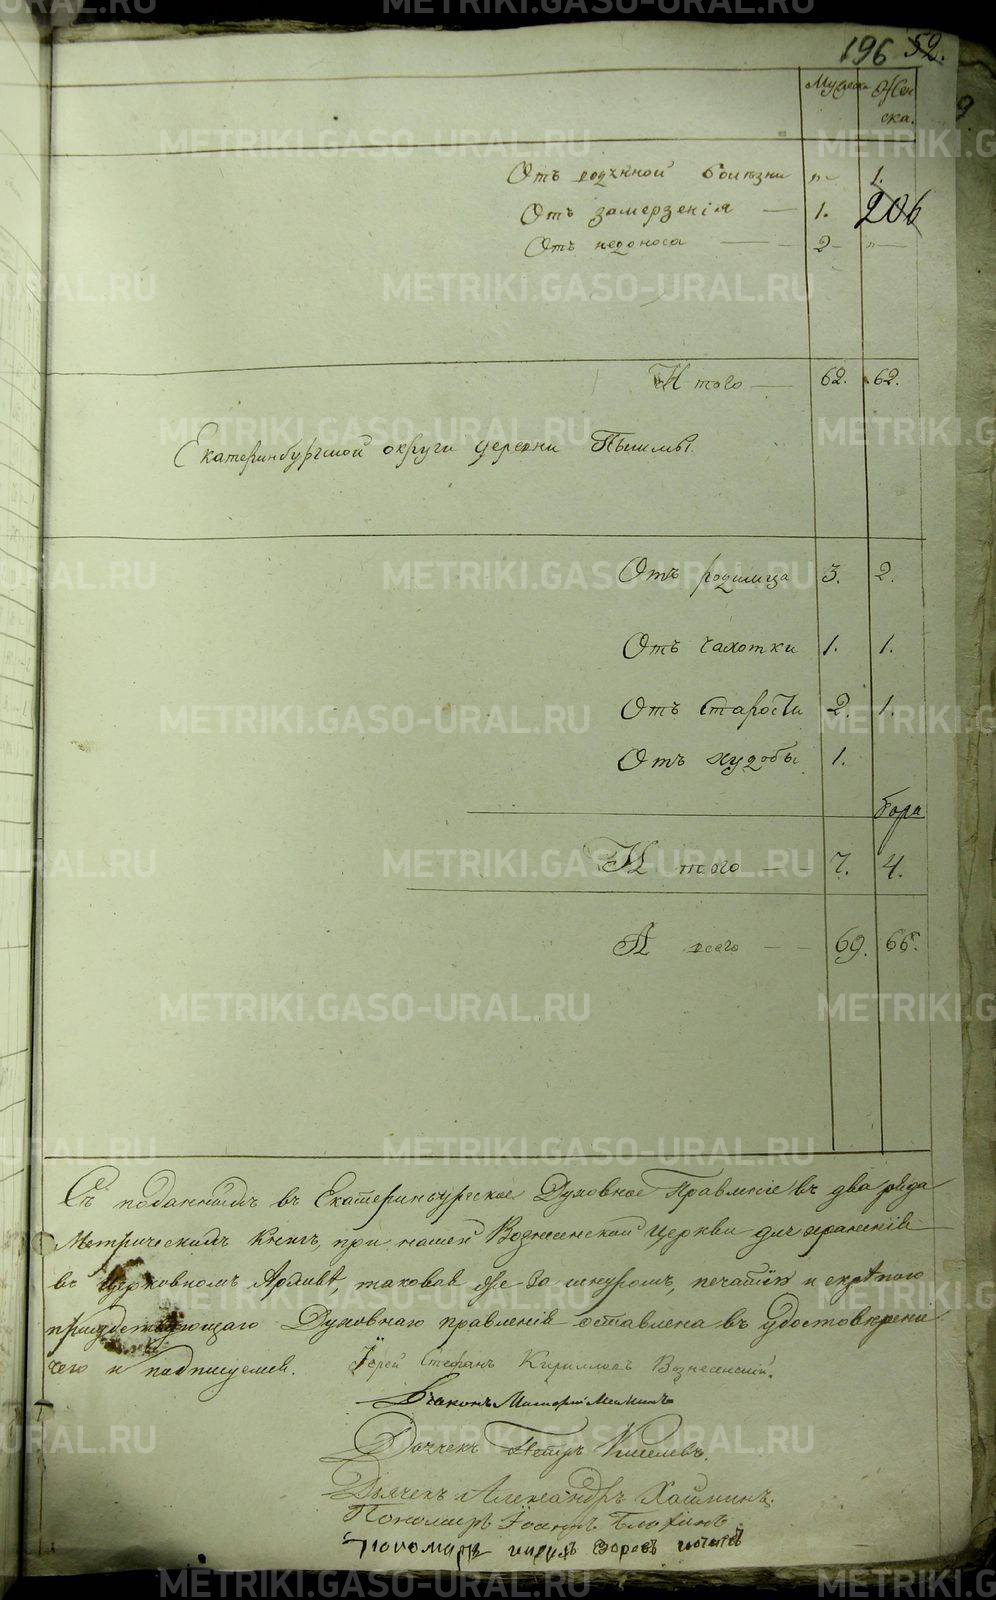 196 52.
Мужеска Жен
ска.
9
Отъ родимой болѣзни „— 1.
206
Отъ замерзенія — 1.
Отъ недоноса — — 2 — „—
Итого — 62. 62.
Екатеринбургской округи деревни Пышмы.
Отъ родимца 3. 2.
Отъ чахотки 1. 1.
Отъ старости 2. 1.
Отъ худобы 1.
Итого — 7. 4.
А всего — — 69. 66.
Съ поданныхъ въ Екатеринбургское Духовное Правленіе въ два ряда
Метрическихъ книгъ, при нашей Вознесенской Церкви для храненія
въ церковномъ Архивѣ, таковая же за шнуромъ, печатью и скрѣпою
присудствующаго Духовнаго правленія оставлена въ удостовѣрени
чего и подписуемся. Іерей Стефанъ Кирилловъ Вознесенскій.
Діаконъ
Дьячекъ Петръ Киселевъ.
Дьячекъ Александръ
Пономарь Іоаннъ
Пономарь
METRIKI.GASO-URAL.RU